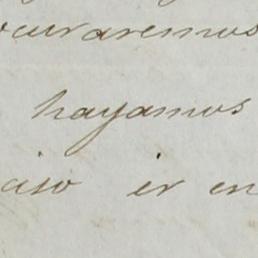 ocuraremos
hayamos
ciso ir en